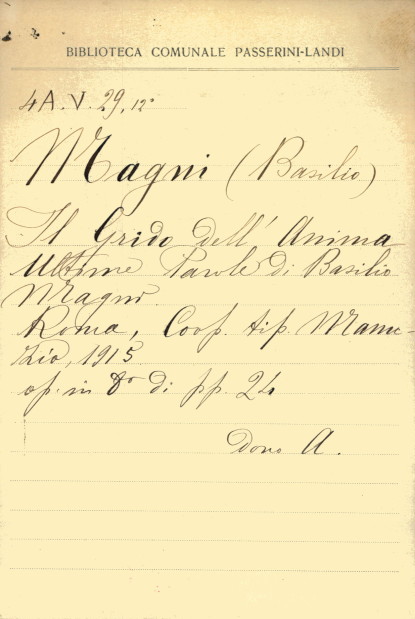 BIBLIOTECA COMUNALE PASSERINI-LANDI
4A. V. 29, 12°
Magni (Basilio)
Il Grido dell' Anima
Ultime Parole di Basilio
Magni.
Roma, Coop. tip. Manu-
zio, 1915
op. in 8° di pp. 24
dono A.